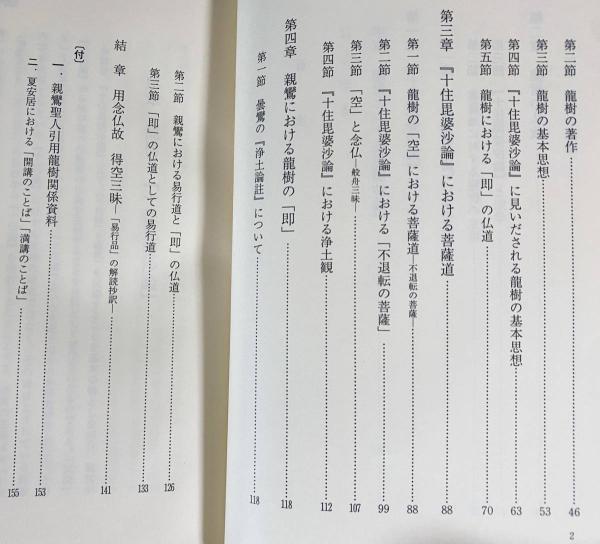 第二節 龍樹の著作 46
第三節 龍樹の基本思想 53
第四節 『十住毘婆沙論』に見いだされる龍樹の基本思想 63
第五節 龍樹における「即」の仏道 70
第三章 『十住毘婆沙論』における菩薩道 88
第一節 龍樹の「空」における菩薩道―不退転の菩薩― 88
第二節 『十住毘婆沙論』における「不退転の菩薩」 99
第三節 「空」と念仏―般舟三昧― 107
第四節 『十住毘婆沙論』における浄土観 112
第四章 親鸞における龍樹の「即」 118
第一節 曇鸞の『浄土論註』について 118
2
第二節 親鸞における易行道と「即」の仏道 126
第三節 「即」の仏道としての易行道 133
結章 用念仏故 得空三昧―「易行品」の解読抄訳― 141
〔付〕
一．親鸞聖人引用龍樹関係資料 153
二．夏安居における「開講のことば」「満講のことば」 155